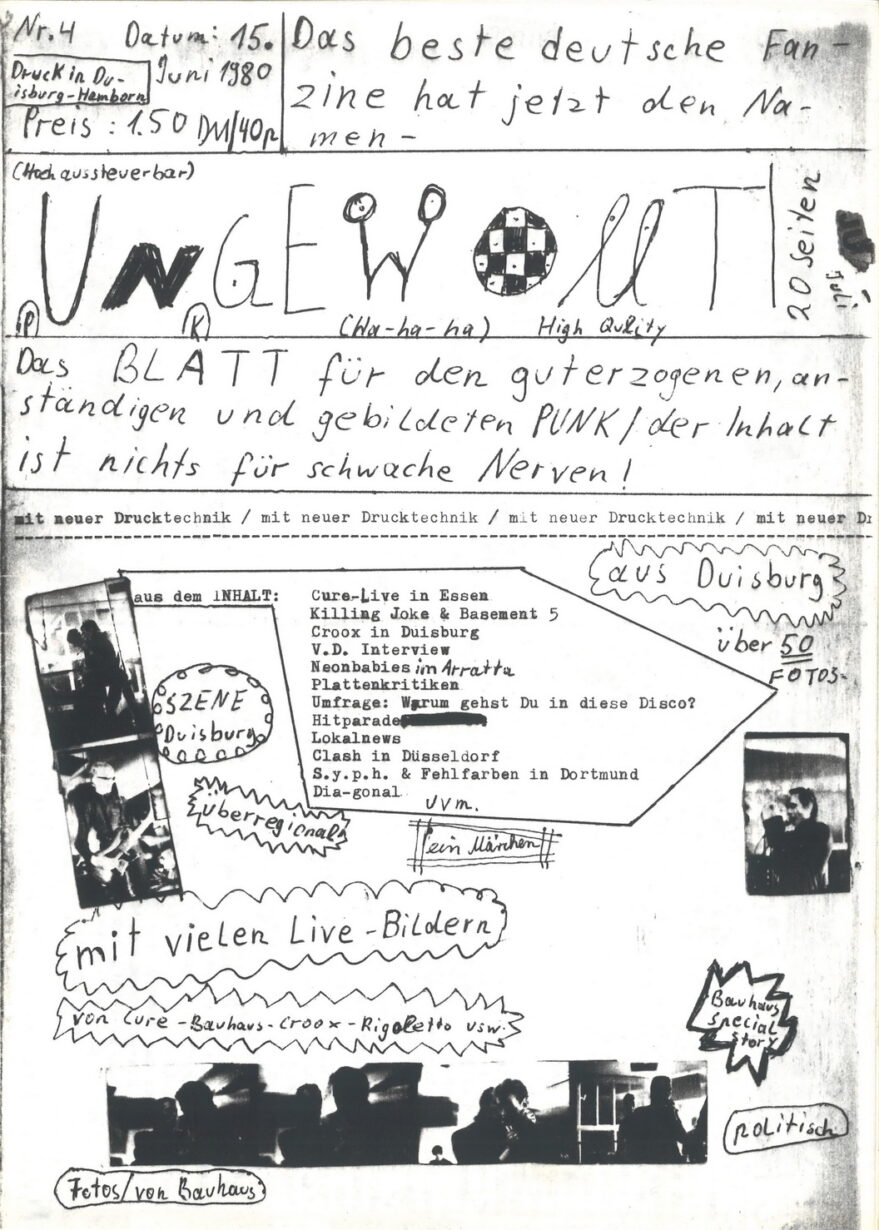 Nr. 4 Datum: 15.
Juni 1980
Druck in Du-
isburg-Hamborn
Preis : 1.50 DM/40p
Das beste deutsche Fan-
zine hat jetzt den Na-
men -
(Hoch aussteuerbar)
UNGEWOLLT
P
K
(Ha-ha-ha) High Qulity
20 Seiten
Juli
Das BLATT für den guterzogenen, an-
ständigen und gebildeten PUNK / der Inhalt
ist nichts für schwache Nerven!
mit neuer Drucktechnik / mit neuer Drucktechnik / mit neuer Drucktechnik / mit neuer Dr
aus Duisburg
über 50
FOTOS-
aus dem INHALT:
Cure-Live in Essen
Killing Joke & Basement 5
Croox in Duisburg
V.D. Interview
Neonbabies im Arratta
Plattenkritiken
Umfrage: Warum gehst Du in diese Disco?
Hitparade
Lokalnews
Clash in Düsseldorf
S.y.p.h. & Fehlfarben in Dortmund
Dia-gonal
uvm.
SZENE
Duisburg
überregional
ein Märchen
mit vielen Live-Bildern
von Cure - Bauhaus - Croox - Rigoletto usw.
Bauhaus
special
story
politisch
Fotos/von Bauhaus